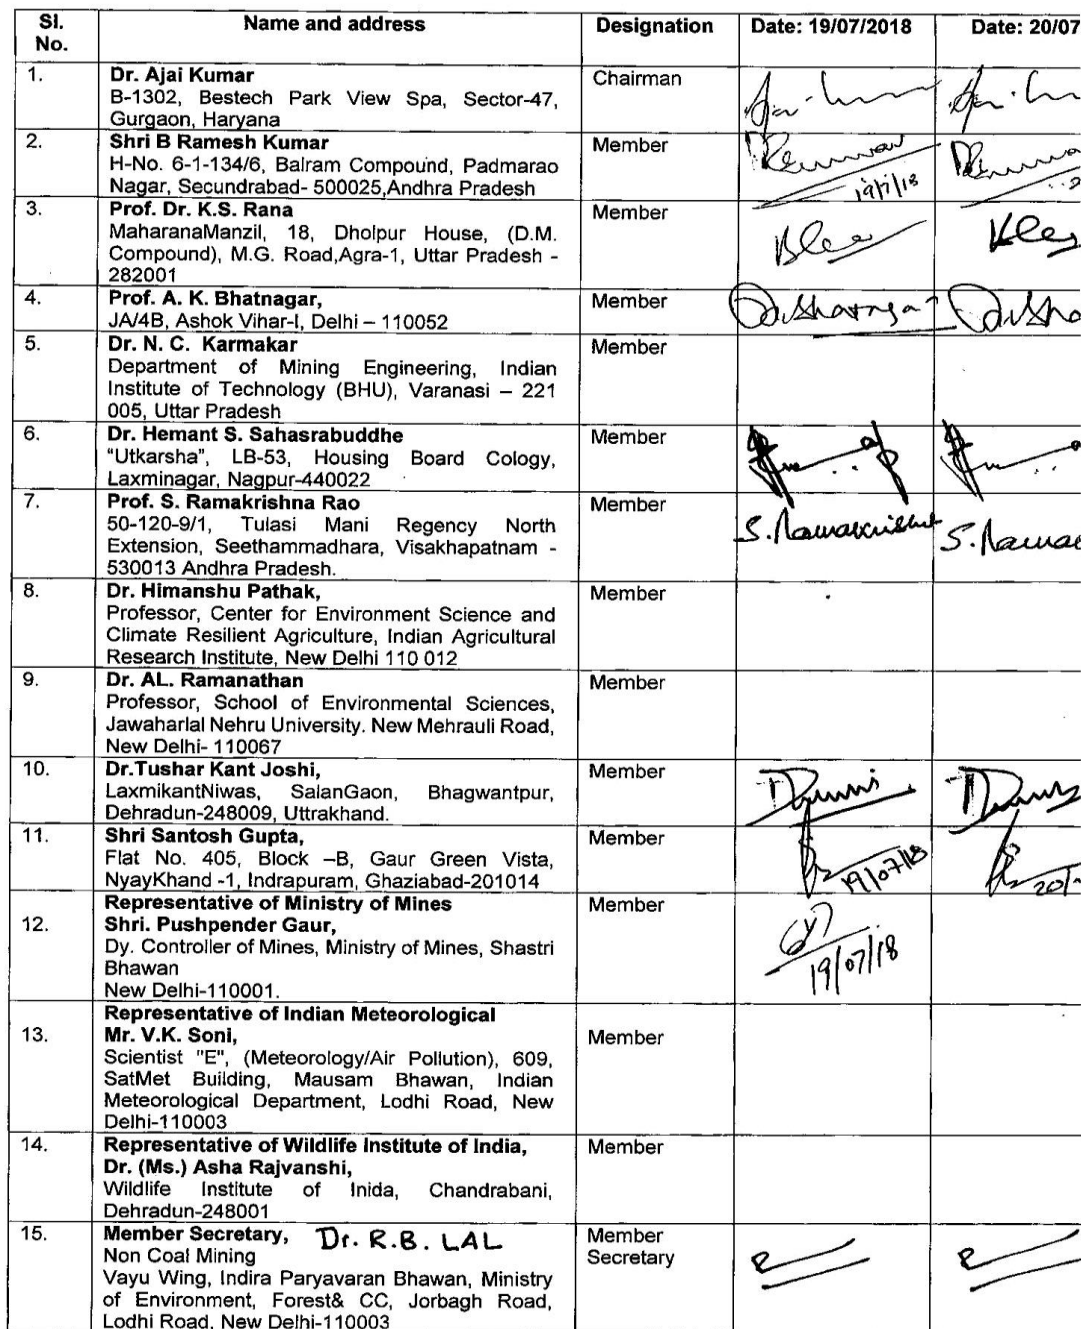 Sl. No. Name and address Designation Date: 19/07/2018 Date: 20/07
1. Dr. Ajai Kumar Chairman
B-1302, Bestech Park View Spa, Sector-47,
Gurgaon, Haryana
2. Shri B Ramesh Kumar Member
H-No. 6-1-134/6, Balram Compound, Padmarao
Nagar, Secundrabad- 500025,Andhra Pradesh
19/7/18
3. Prof. Dr. K.S. Rana Member
MaharanaManzil, 18, Dholpur House, (D.M.
Compound), M.G. Road,Agra-1, Uttar Pradesh -
282001
4. Prof. A. K. Bhatnagar, Member
JA/4B, Ashok Vihar-I, Delhi – 110052
5. Dr. N. C. Karmakar Member
Department of Mining Engineering, Indian
Institute of Technology (BHU), Varanasi – 221
005, Uttar Pradesh
6. Dr. Hemant S. Sahasrabuddhe Member
"Utkarsha", LB-53, Housing Board Cology,
Laxminagar, Nagpur-440022
7. Prof. S. Ramakrishna Rao Member
50-120-9/1, Tulasi Mani Regency North
Extension, Seethammadhara, Visakhapatnam -
530013 Andhra Pradesh.
8. Dr. Himanshu Pathak, Member
Professor, Center for Environment Science and
Climate Resilient Agriculture, Indian Agricultural
Research Institute, New Delhi 110 012
9. Dr. AL. Ramanathan Member
Professor, School of Environmental Sciences,
Jawaharlal Nehru University. New Mehrauli Road,
New Delhi- 110067
10. Dr.Tushar Kant Joshi, Member
LaxmikantNiwas, SalanGaon, Bhagwantpur,
Dehradun-248009, Uttrakhand.
11. Shri Santosh Gupta, Member
Flat No. 405, Block –B, Gaur Green Vista,
NyayKhand -1, Indrapuram, Ghaziabad-201014
19/07/18 20/
Representative of Ministry of Mines Member
12. Shri. Pushpender Gaur,
Dy. Controller of Mines, Ministry of Mines, Shastri
Bhawan
New Delhi-110001.
19/07/18
Representative of Indian Meteorological
13. Mr. V.K. Soni, Member
Scientist "E", (Meteorology/Air Pollution), 609,
SatMet Building, Mausam Bhawan, Indian
Meteorological Department, Lodhi Road, New
Delhi-110003
14. Representative of Wildlife Institute of India, Member
Dr. (Ms.) Asha Rajvanshi,
Wildlife Institute of Inida, Chandrabani,
Dehradun-248001
15. Member Secretary, Dr. R.B. LAL Member Secretary
Non Coal Mining
Vayu Wing, Indira Paryavaran Bhawan, Ministry
of Environment, Forest& CC, Jorbagh Road,
Lodhi Road, New Delhi-110003